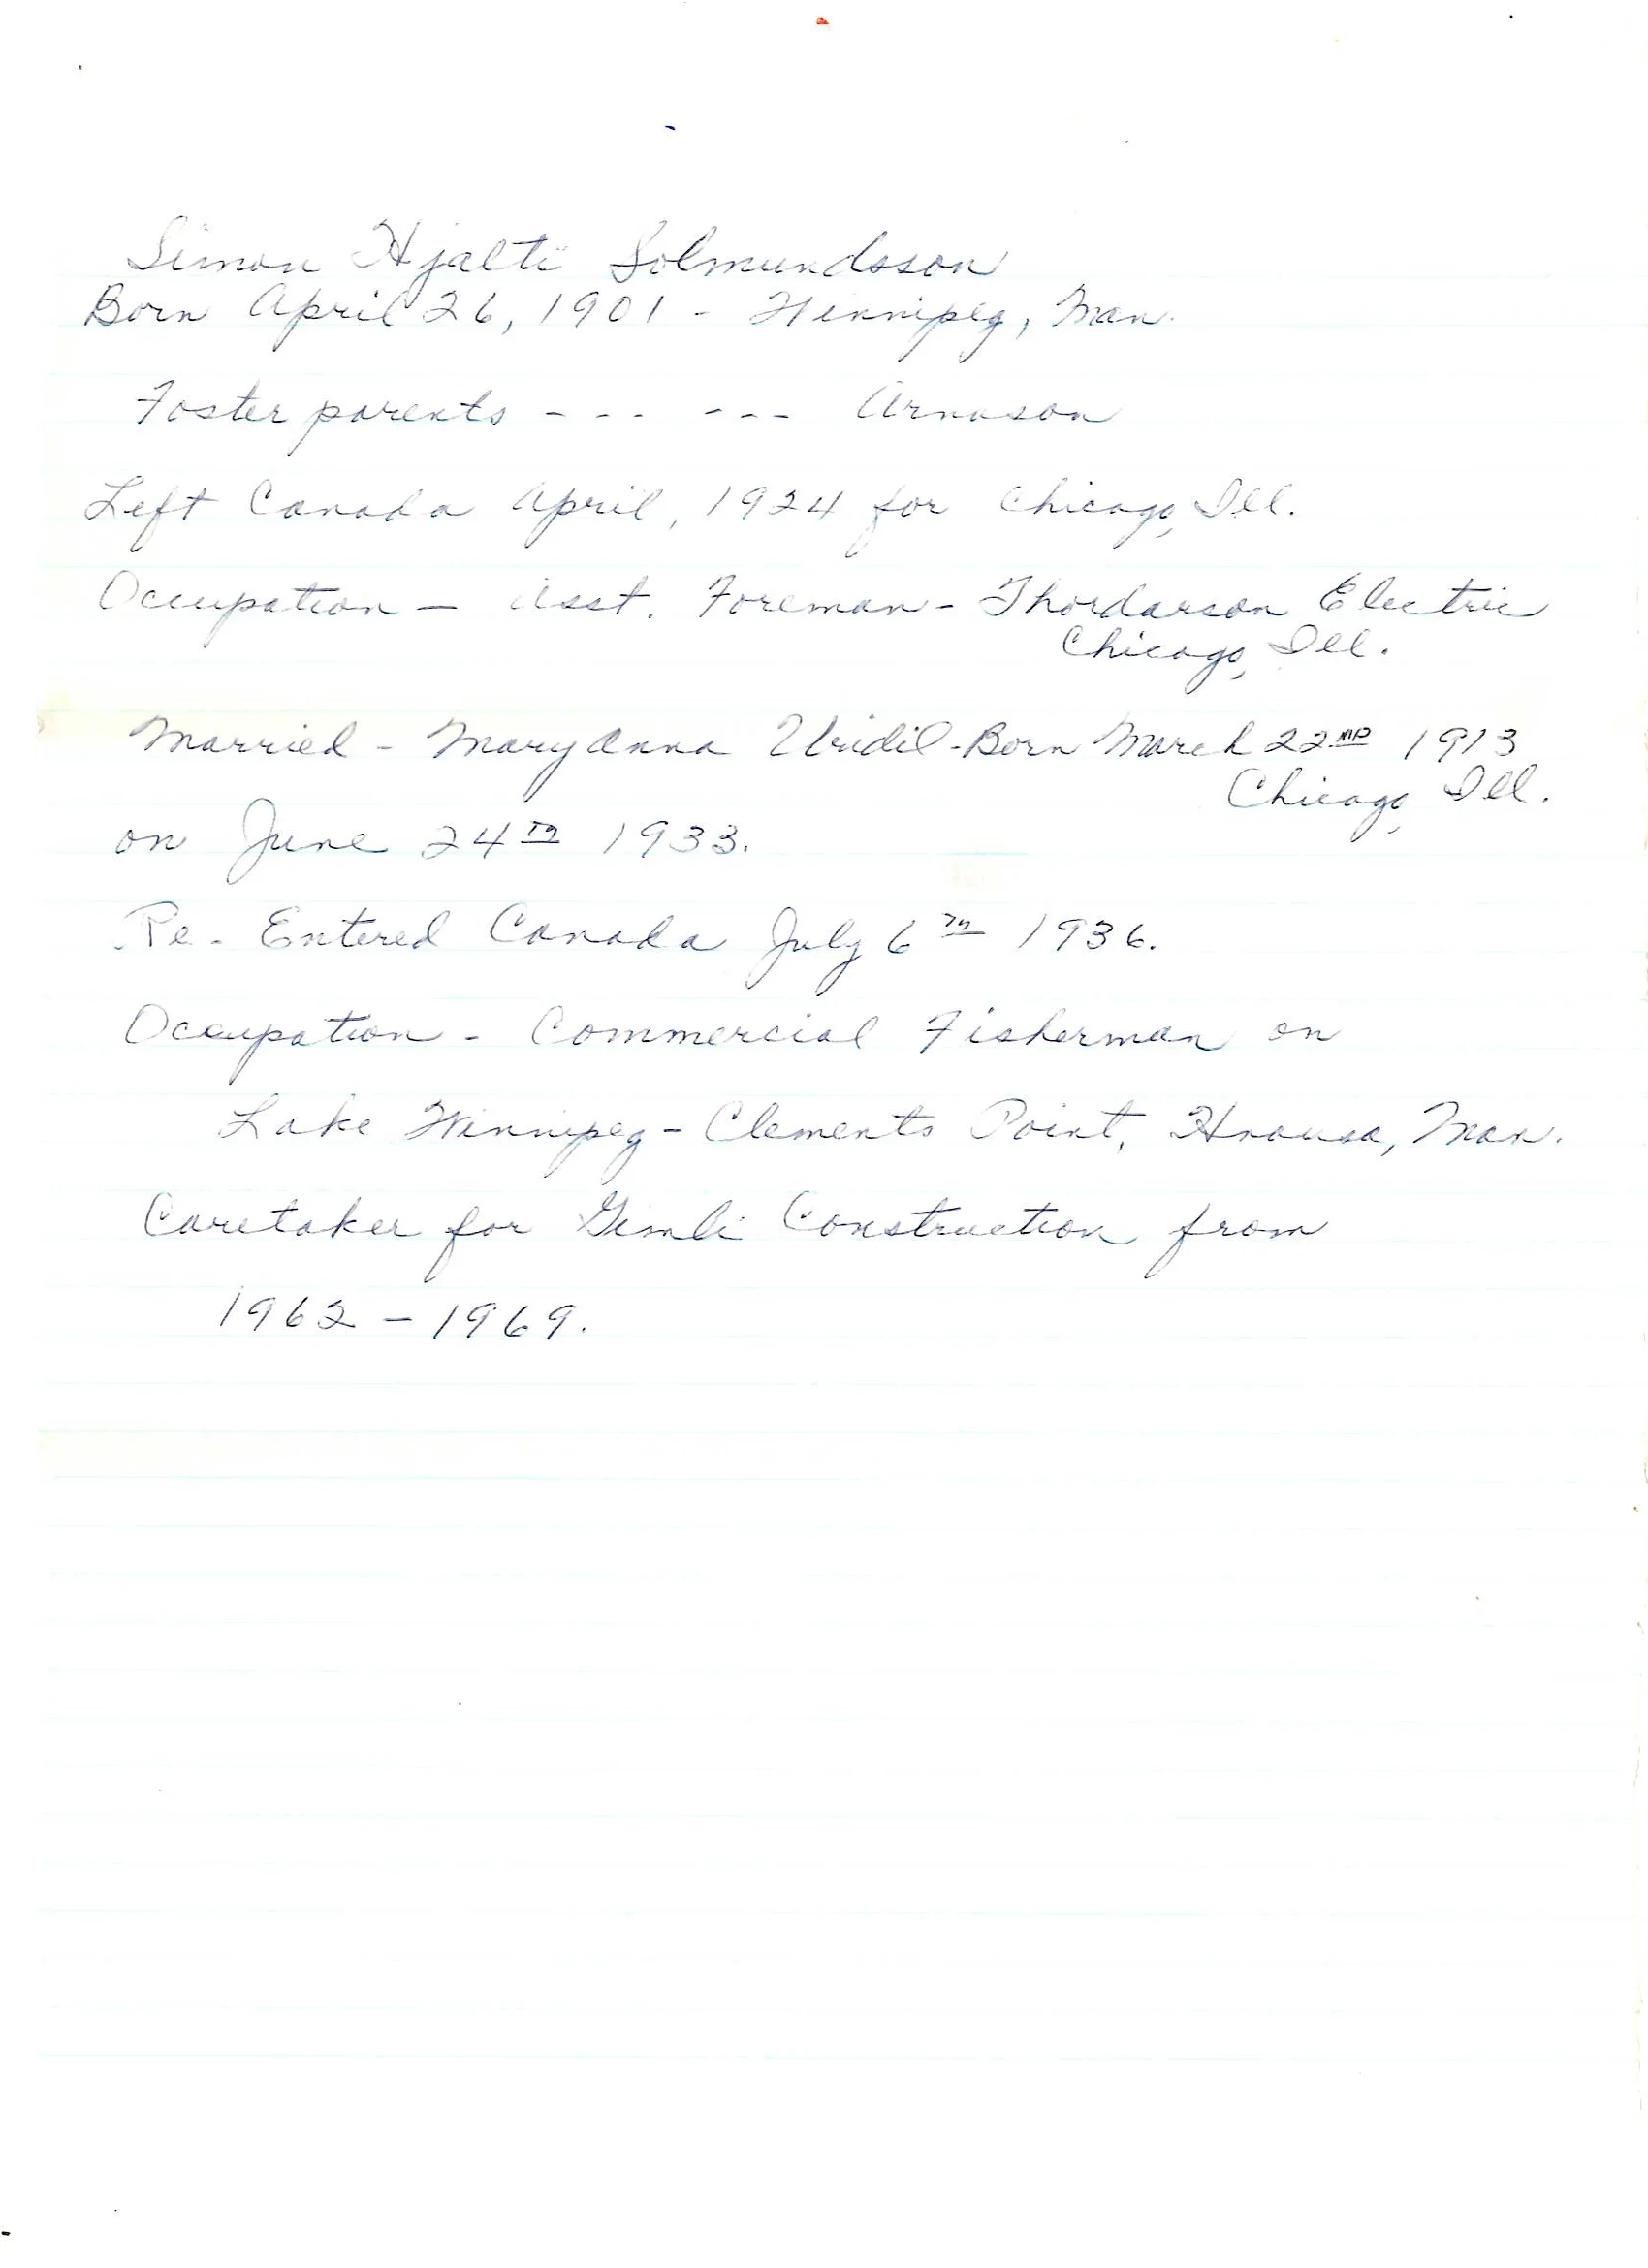 Simon Hjalti Solmundsson
Born April 26, 1901 - Winnipeg, Man.
Foster parents - - - - - - Arnason
Left Canada April, 1924 for Chicago, Ill.
Occupation - Asst. Foreman - Thordarson Electric
Chicago, Ill.
Married - Mary Anna Uridil - Born March 22ND 1913
Chicago, Ill.
on June 24TH 1933.
Re-Entered Canada July 6TH 1936.
Occupation - Commercial Fisherman on
Lake Winnipeg - Clements Point, Hnausa, Man.
Caretaker for Gimli Construction from
1962 - 1969.